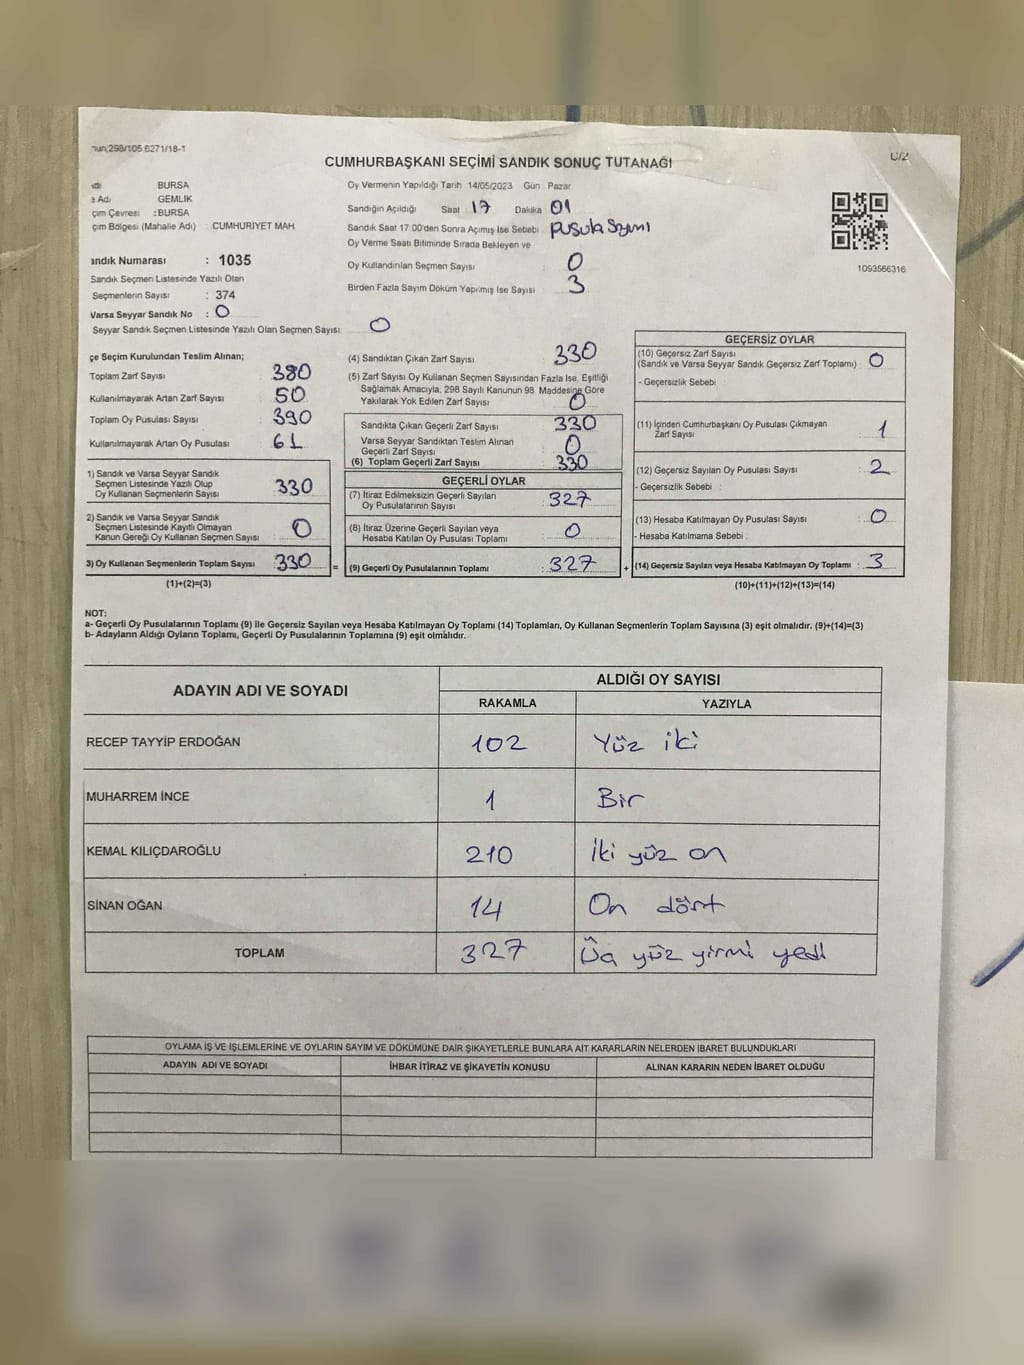 298/105 6271/18-1
CUMHURBAŞKANI SEÇİMİ SANDIK SONUÇ TUTANAĞI
BURSA
Adı GEMLİK
çim Çevresi : BURSA
çim Bölgesi (Mahalle Adı) CUMHURİYET MAH.
andık Numarası : 1035
Sandık Seçmen Listesinde Yazılı Olan
Seçmenlerin Sayısı : 374
Varsa Seyyar Sandık No : 0
Seyyar Sandık Seçmen Listesinde Yazılı Olan Seçmen Sayısı: 0
Oy Vermenin Yapıldığı Tarih 14/05/2023 Gün : Pazar
Sandığın Açıldığı Saat : 17 Dakika : 01
Sandık Saat 17.00'den Sonra Açımış İse Sebebi : pusula sayımı
Oy Verme Saati Bitiminde Sırada Bekleyen ve
Oy Kullandırılan Seçmen Sayısı : 0
Birden Fazla Sayım Döküm Yapılmış İse Sayısı : 3
1093566316
çe Seçim Kurulundan Teslim Alınan;
Toplam Zarf Sayısı : 380
Kullanılmayarak Artan Zarf Sayısı : 50
Toplam Oy Pusulası Sayısı : 390
Kullanılmayarak Artan Oy Pusulası : 61
1) Sandık ve Varsa Seyyar Sandık
Seçmen Listesinde Yazılı Olup
Oy Kullanan Seçmenlerin Sayısı : 330
2) Sandık ve Varsa Seyyar Sandık
Seçmen Listesinde Kayıtlı Olmayan
Kanun Gereği Oy Kullanan Seçmen Sayısı : 0
3) Oy Kullanan Seçmenlerin Toplam Sayısı : 330 =
(1)+(2)=(3)
(4) Sandıktan Çıkan Zarf Sayısı : 330
(5) Zarf Sayısı Oy Kullanan Seçmen Sayısından Fazla İse, Eşitliği
Sağlamak Amacıyla, 298 Sayılı Kanunun 98. Maddesine Göre
Yakılarak Yok Edilen Zarf Sayısı : 0
Sandıkta Çıkan Geçerli Zarf Sayısı : 330
Varsa Seyyar Sandıktan Teslim Alınan
Geçerli Zarf Sayısı : 0
(6) Toplam Geçerli Zarf Sayısı : 330
GEÇERLİ OYLAR
(7) İtiraz Edilmeksizin Geçerli Sayılan
Oy Pusulalarının Sayısı : 327
(8) İtiraz Üzerine Geçerli Sayılan veya
Hesaba Katılan Oy Pusulası Toplamı : 0
(9) Geçerli Oy Pusulalarının Toplamı : 327 +
GEÇERSİZ OYLAR
(10) Geçersiz Zarf Sayısı
(Sandık ve Varsa Seyyar Sandık Geçersiz Zarf Toplamı) : 0
- Geçersizlik Sebebi
(11) İçinden Cumhurbaşkanı Oy Pusulası Çıkmayan
Zarf Sayısı : 1
(12) Geçersiz Sayılan Oy Pusulası Sayısı : 2
- Geçersizlik Sebebi :
(13) Hesaba Katılmayan Oy Pusulası Sayısı : 0
- Hesaba Katılmama Sebebi :
(14) Geçersiz Sayılan veya Hesaba Katılmayan Oy Toplamı : 3
(10)+(11)+(12)+(13)=(14)
NOT:
a- Geçerli Oy Pusulalarının Toplamı (9) ile Geçersiz Sayılan veya Hesaba Katılmayan Oy Toplamı (14) Toplamları, Oy Kullanan Seçmenlerin Toplam Sayısına (3) eşit olmalıdır. (9)+(14)=(3)
b- Adayların Aldığı Oyların Toplamı, Geçerli Oy Pusulalarının Toplamına (9) eşit olmalıdır.
ADAYIN ADI VE SOYADI ALDIĞI OY SAYISI
RAKAMLA YAZIYLA
RECEP TAYYİP ERDOĞAN 102 Yüz iki
MUHARREM İNCE 1 Bir
KEMAL KILIÇDAROĞLU 210 İki yüz on
SİNAN OĞAN 14 On dört
TOPLAM 327 Üç yüz yirmi yedi
OYLAMA İŞ VE İŞLEMLERİNE VE OYLARIN SAYIM VE DÖKÜMÜNE DAİR ŞİKAYETLERLE BUNLARA AİT KARARLARIN NELERDEN İBARET BULUNDUKLARI
ADAYIN ADI VE SOYADI İHBAR İTİRAZ VE ŞİKAYETİN KONUSU ALINAN KARARIN NEDEN İBARET OLDUĞU